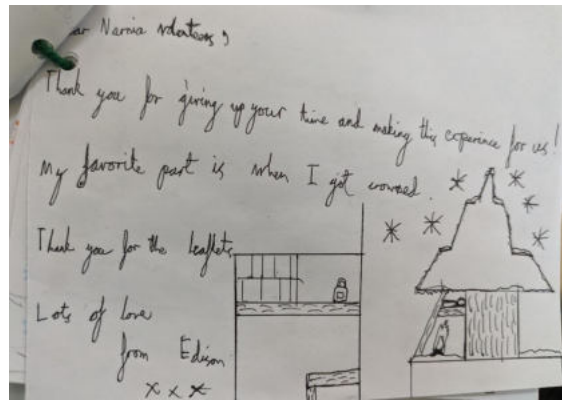 ar Narnia volenteers,
Thank you for giving up your time and making this experience for us!
My favorite part is when I got crowned.
Thank you for the leaflets
Lots of love
from Edison
x x x